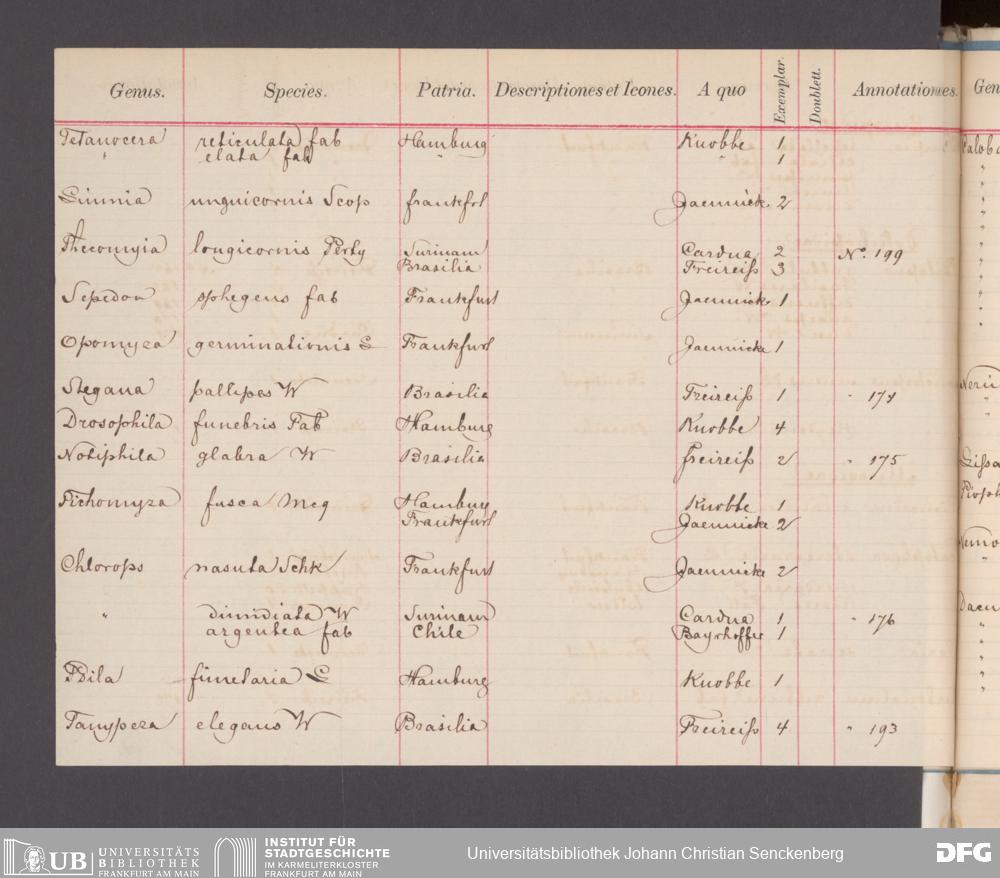 Genus. Species. Patria. Descriptiones et Icones. A quo Exemplar. Doublett. Annotationes. Gen
Tetanocera reticulata fab Hamburg Knobbe 1
" elata fab " " 1
Limnia unguicornis Scop frankfrt Jaennicke 2
Thecomyia longicornis Perty Surinam Cardua 2 No. 199
Brasilia Freireiß 3
Sepedon sphegeus fab Frankfurt Jaennicke 1
Opomyza germinationis L Frankfurt Jaennicke 1
Stegana pallipes W Brasilia Freireiß 1 " 174
Drosophila funebris Fab Hamburg Knobbe 4
Notiphila glabra W Brasilia freireiß 2 " 175
fusca Mcq Hamburg Knobbe 1
Frankfurt Jaennicke 2
Chlorops nasuta Schk Frankfurt Jaennicke 2
" dimidiata W Surinam Cardua 1 " 176
argentea fab Chile Bayrhoffer 1
funetaria L Hamburg Knobbe 1
Tanypeza elegans W Brasilia Freireiß 4 " 193
UB UNIVERSITÄTS BIBLIOTHEK FRANKFURT AM MAIN
INSTITUT FÜR STADTGESCHICHTE IM KARMELITERKLOSTER FRANKFURT AM MAIN
Universitätsbibliothek Johann Christian Senckenberg
DFG